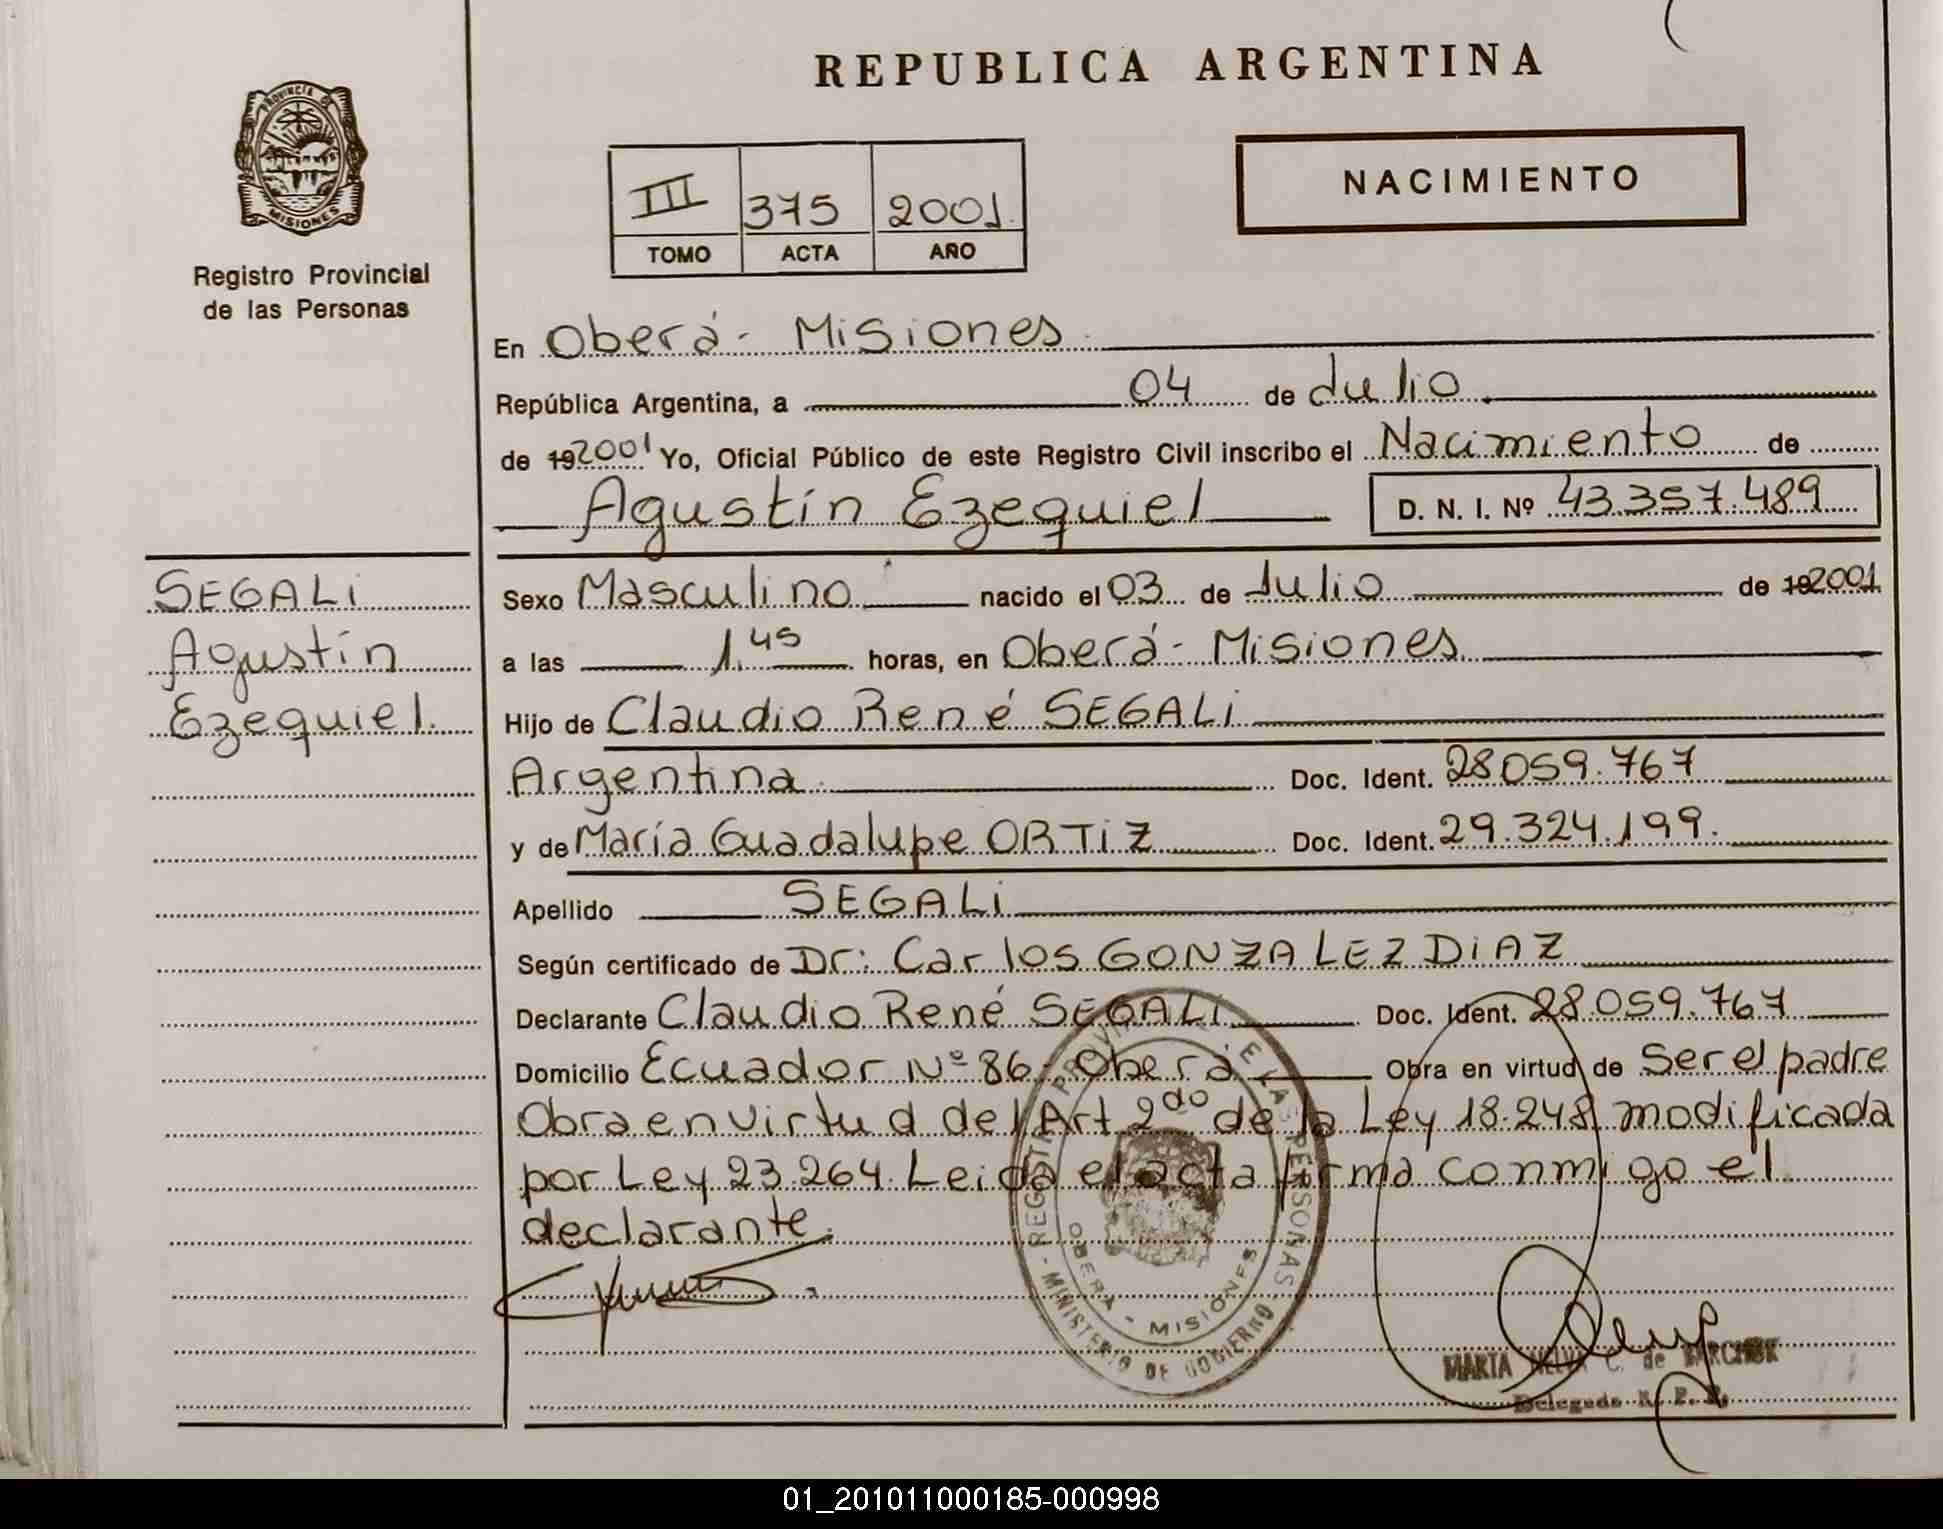 REPUBLICA ARGENTINA
PROVINCIA DE
MISIONES
Registro Provincial
de las Personas
NACIMIENTO
III 375 2001.
TOMO ACTA AÑO
En Oberá - Misiones
República Argentina, a 04 de Julio
de 192001 Yo, Oficial Público de este Registro Civil inscribo el Nacimiento de
Agustín Ezequiel D. N. I. Nº 43.357.489
SEGALI
Agustín
Ezequiel.
Sexo Masculino nacido el 03 de Julio de 192001
a las 1.45 horas, en Oberá - Misiones
Hijo de Claudio René SEGALI
Argentina Doc. Ident. 28.059.767
y de María Guadalupe ORTIZ Doc. Ident. 29.324.199.
Apellido SEGALI
Según certificado de Dr: Carlos GONZALEZ DIAZ
Declarante Claudio René SEGALI Doc. Ident. 28.059.767
Domicilio Ecuador Nº 86 Oberá Obra en virtud de Ser el padre
Obra en virtud del Art 2do de la Ley 18.248 modificada
por Ley 23.264. Leida el acta firma conmigo el
declarante.
OBERA - MISIONES
MINISTERIO DE GOBIERNO
MARTA C. de
Delegada R. P. P.
01_201011000185-000998